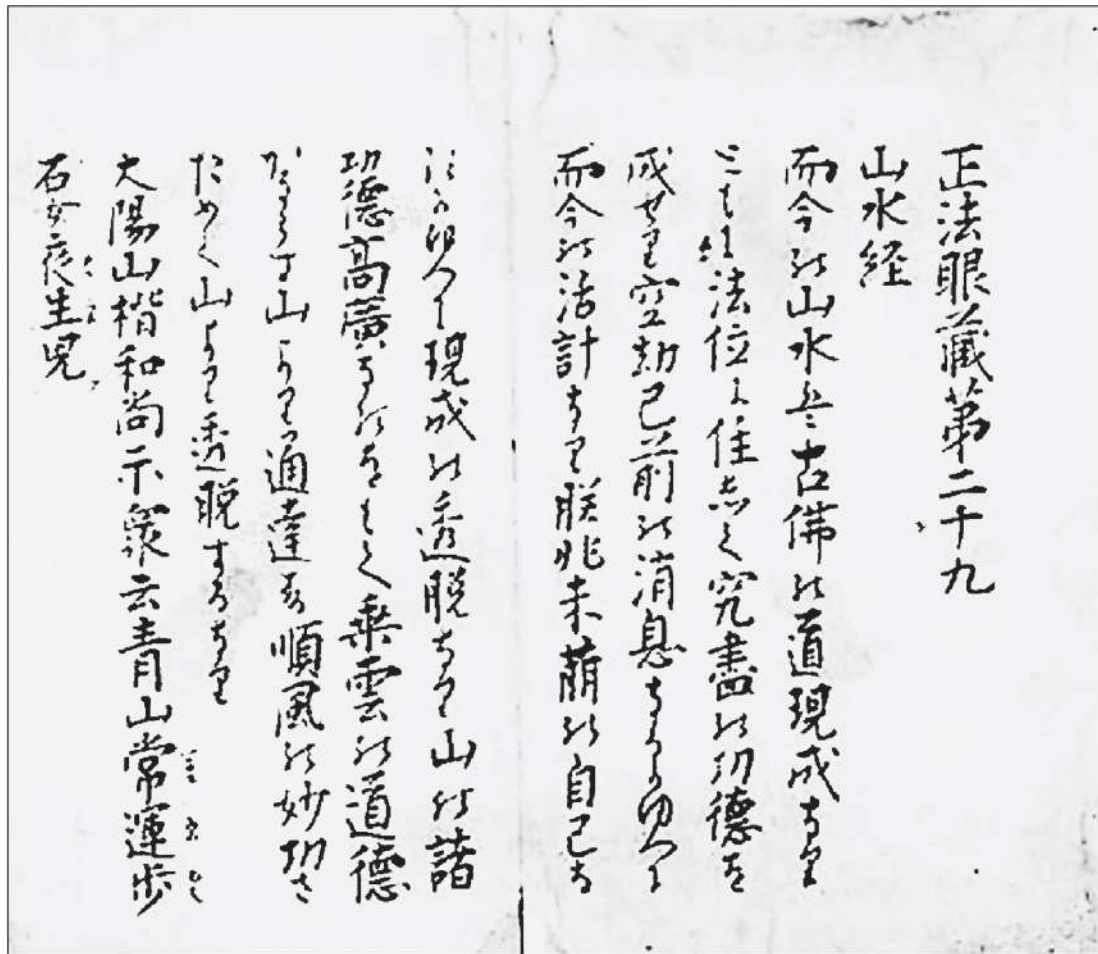 正法眼蔵第二十九
山水経
而今の山水は古佛の道現成なり
ともに法位に住して究盡の功德を
成せり空劫已前の消息なるかゆへに
而今の活計なり朕兆未萠の自己な
るかゆへに現成の透脱なり山の諸
功德高廣なるをもて乗雲の道德
かならす山より通達す順風の妙功さ
ためて山より透脱するなり
大陽山楷和尚示衆云青山常運歩
石女夜生児